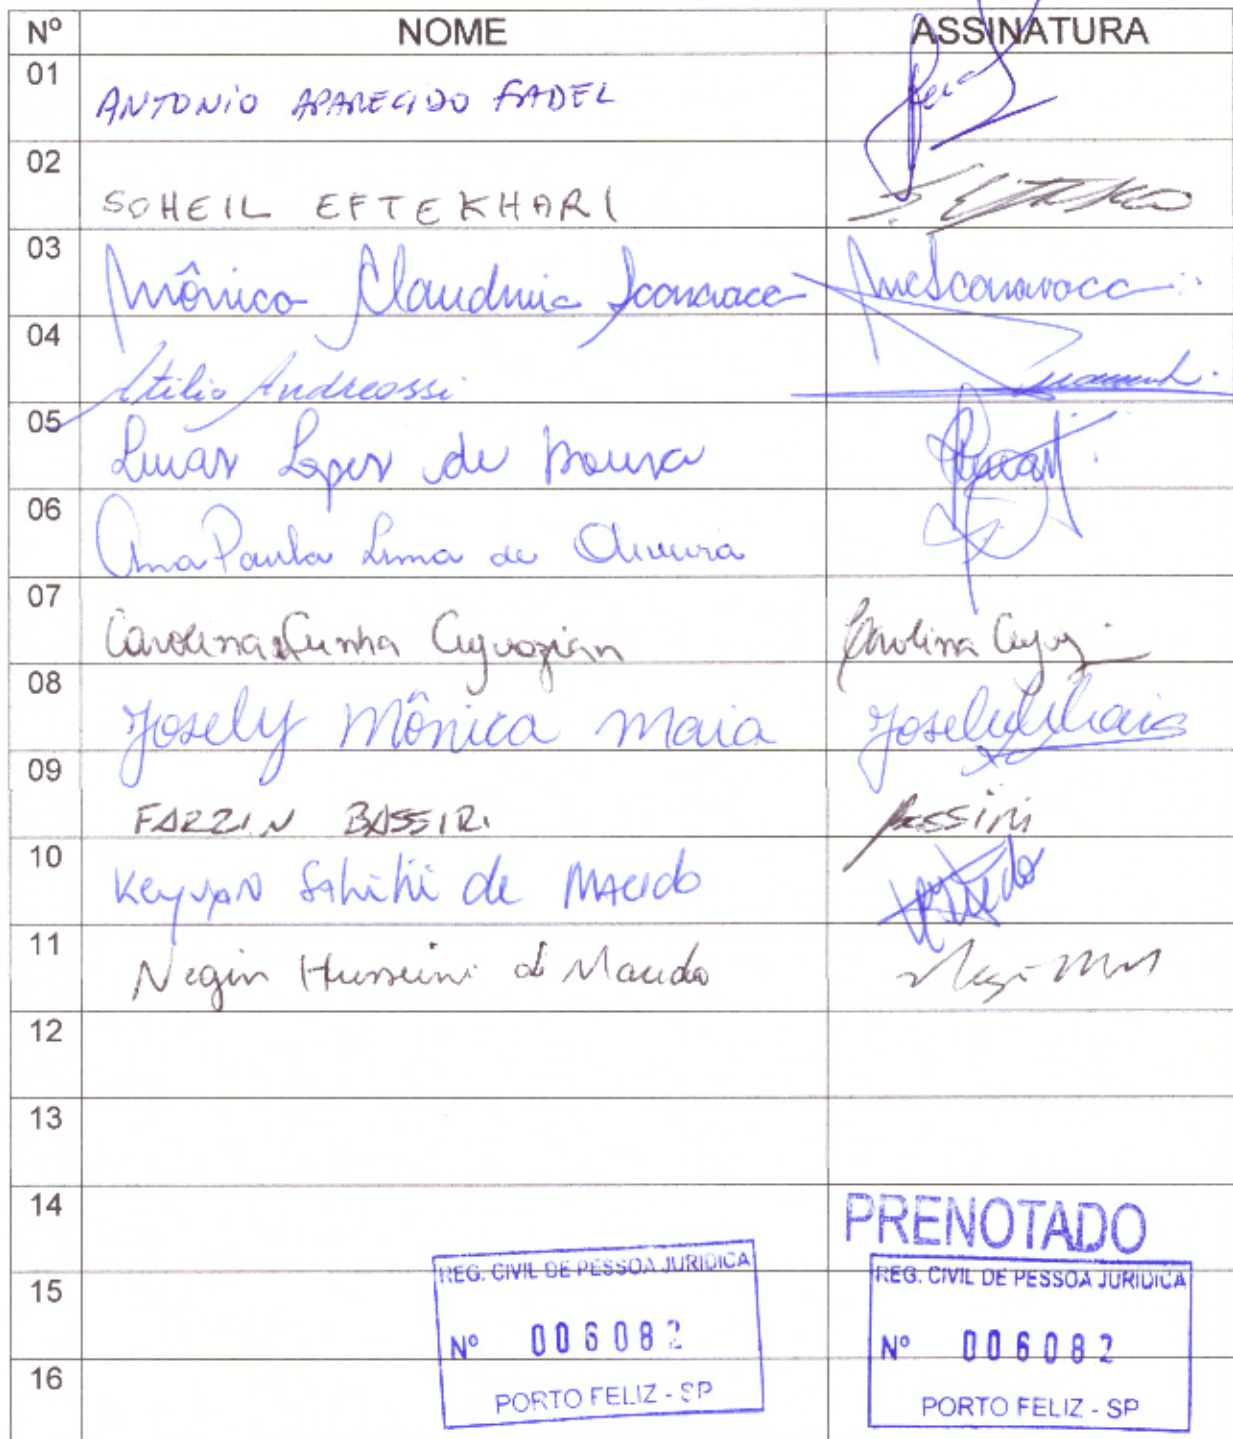 Nº NOME ASSINATURA
01 ANTONIO APARECIDO FADEL
02 SOHEIL EFTEKHARI
03 Mônica Claudnia Sconavacca MCSconavacca
04 Atilio Andreossi
05 Lucas Lopes de Moura Lucas
06 Ana Paula Lima de Oliveira
07 Carolina Cunha Ayvazian Carolina Ayvaz
08 Josely Mônica Maia Josely Maia
09 FARZIN BASSIRI Bassiri
10 Keyvan Sahihi de Macedo
11 Negin Husseini de Macedo
12
13
14 PRENOTADO
REG. CIVIL DE PESSOA JURIDICA REG. CIVIL DE PESSOA JURIDICA
15
Nº 006082 Nº 006082
16
PORTO FELIZ - SP PORTO FELIZ - SP